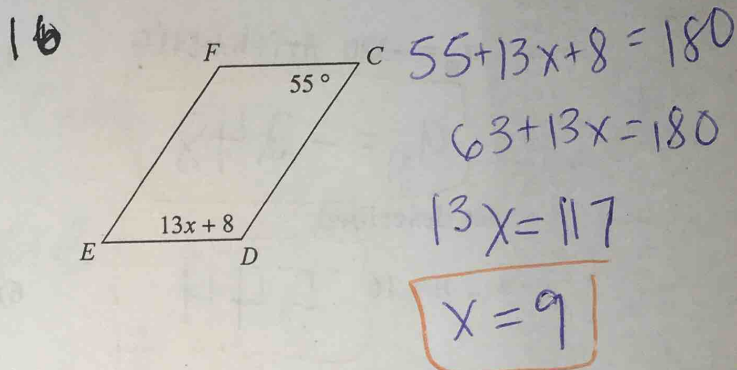 16
F
C
55°
13x + 8
E
D
55+13x+8=180
63+13x=180
13x=117
x=9